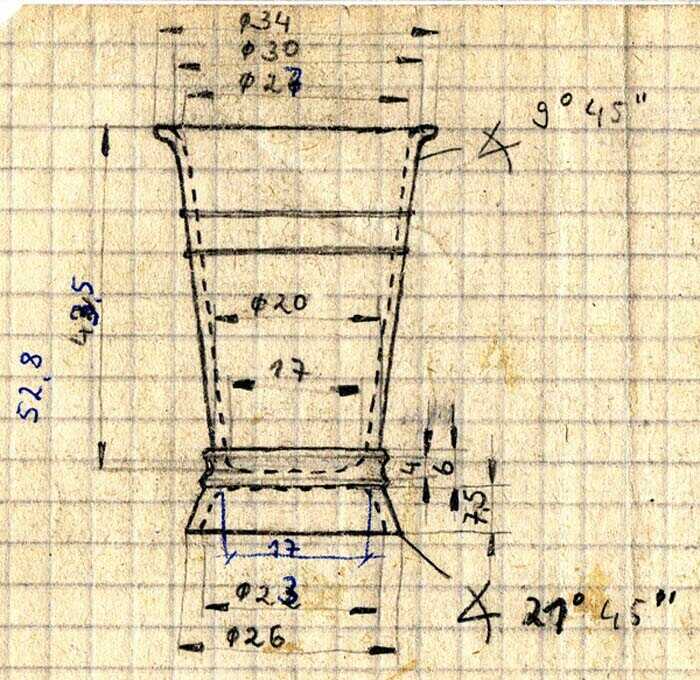 ø34
ø30
ø27
9° 45"
43,5
52,8
ø20
17
4
6
7,5
17
ø23
ø26
21° 45"